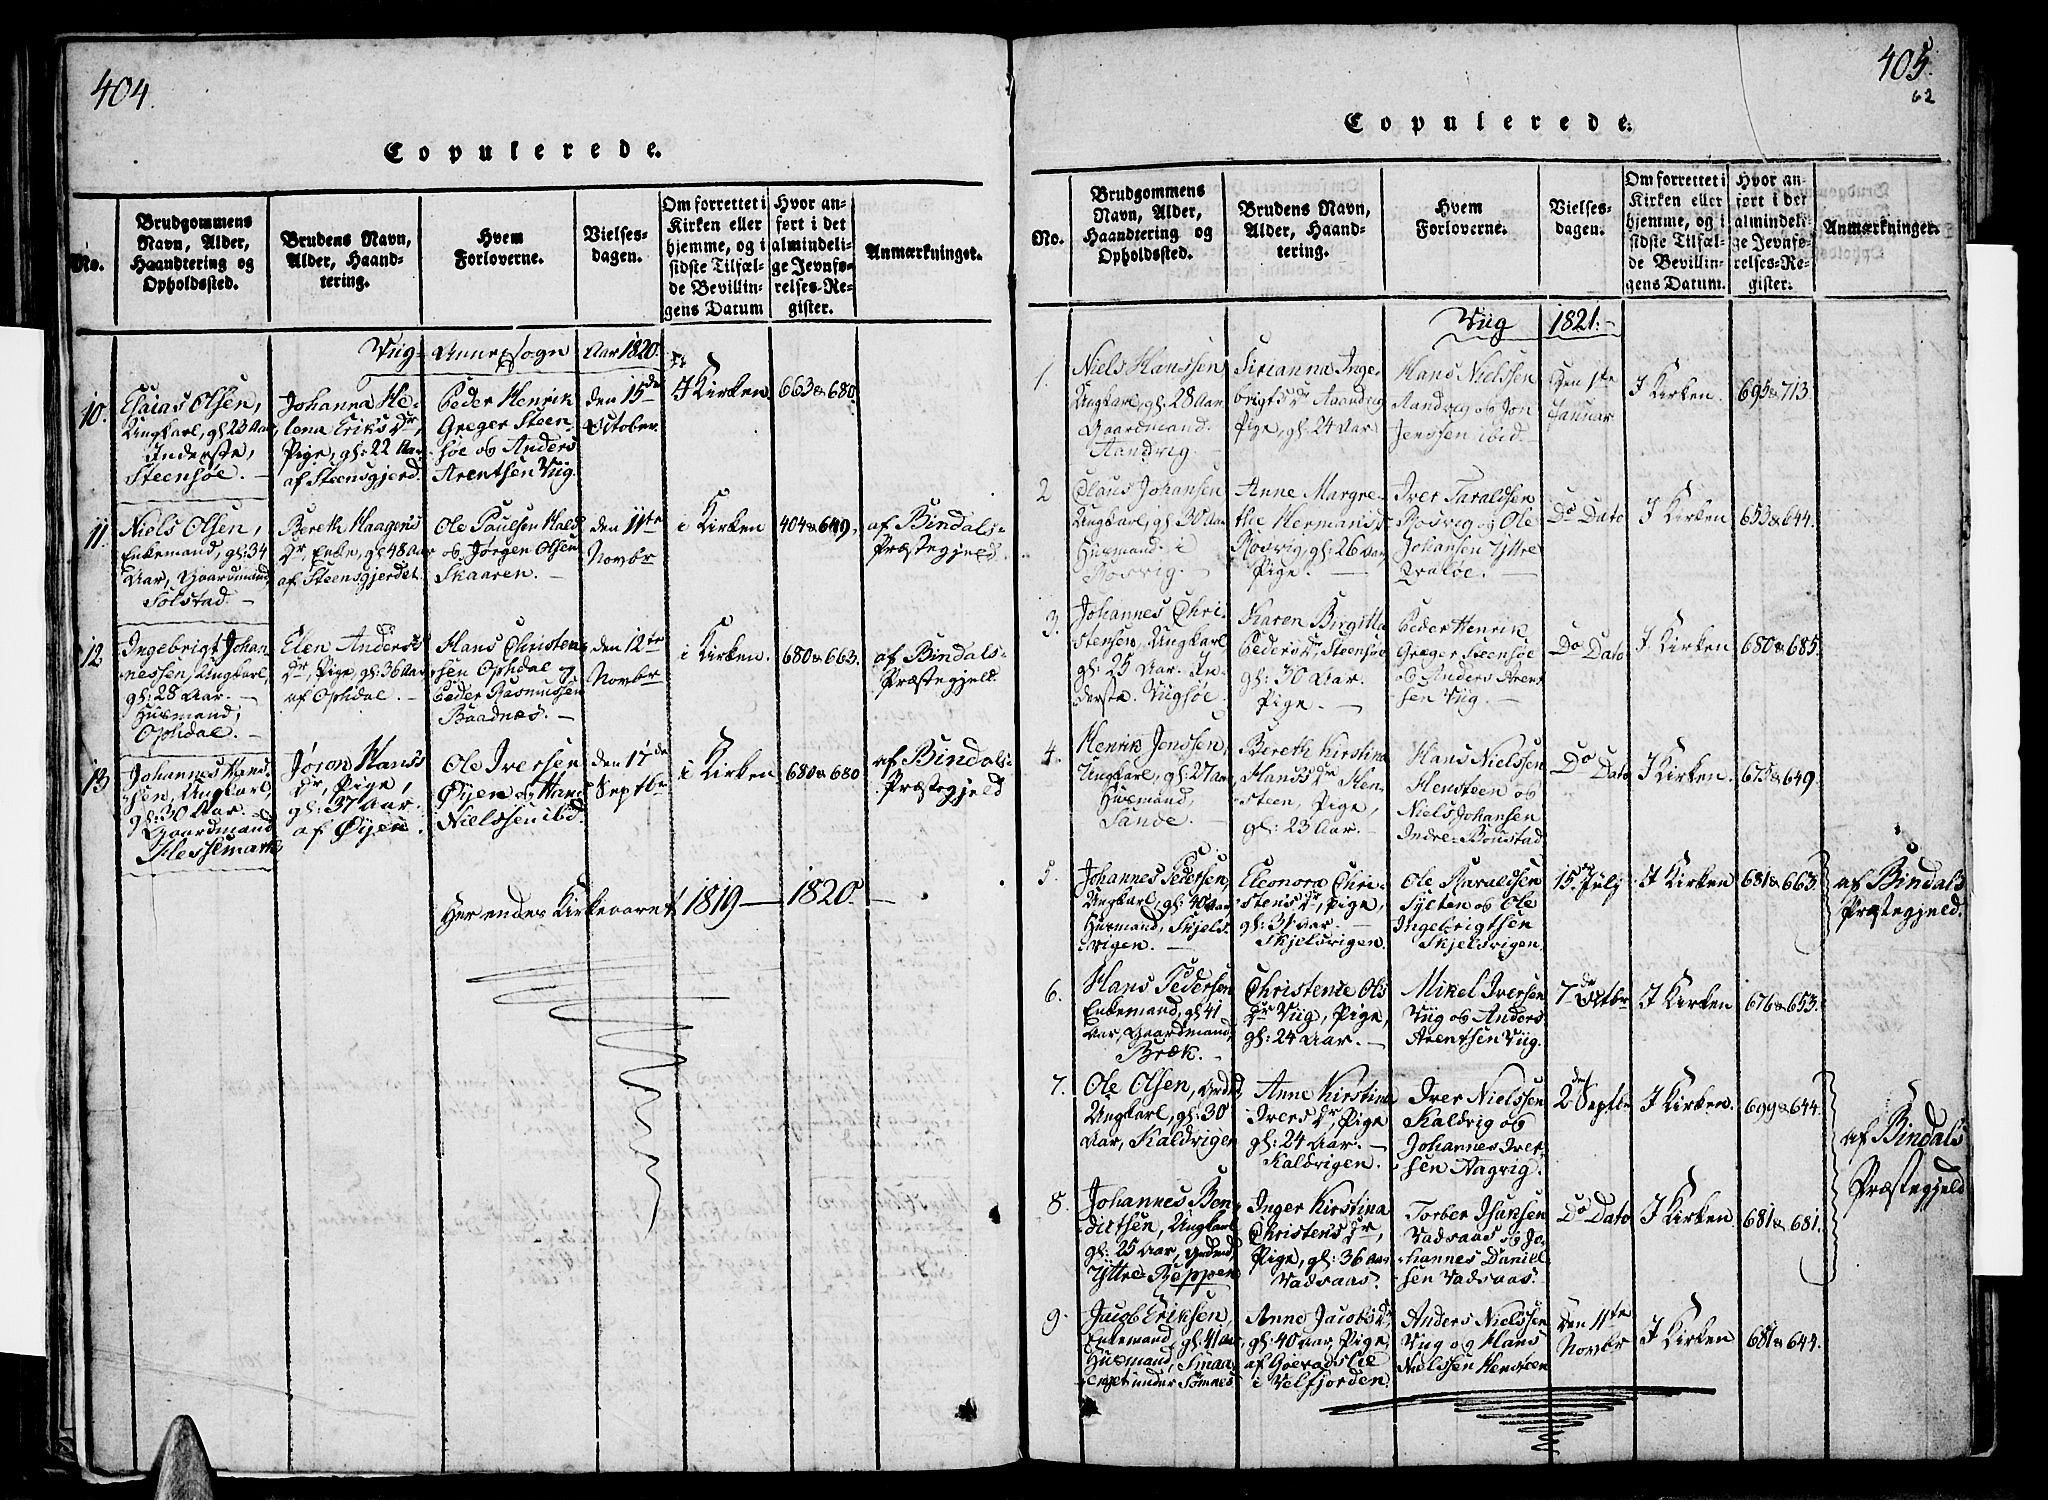 404.
Copulerede.
No.
Brudgommens
Navn, Alder,
Haandtering og
Opholdssted.
Brudens Navn,
Alder, Haand-
tering.
Hvem
Forloverne.
Vielses-
dagen.
Om forrettet i
Kirken eller
hjemme, og i
sidste Tilfæl-
de Bevillin-
gens Datum
Hvor an-
ført i det
almindeli-
ge Jevnfø-
relses-Re-
gister.
Anmærkninger.
Viig- Annex Sogn Aar 1820.
10.
Esaias Olsen,
Ungkarl, gl: 23 Aar,
Inderste,
Steensøe. -
Johanna He-
lena Eriks Dr,
Pige, gl: 22 Aar
af Steensgjerd.
Peder Henrik
Greger Steen-
søe og Anders
Arentsen Viig.
den 15de
October.
I Kirken
663 & 680.
11.
Niels Olsen,
Enkemand, gl: 34
Aar, Gaardmand,
Solstad. -
Bereth Haagens
Dr, Enke, gl 48 Aar
af Steensgjerdet.
Ole Paulsen Hald
og Jørgen Olsen
Skaaren. -
den 11te
Novbr
i Kirken
404 & 649.
af Bindals-
Præstegjeld.
12
Ingebrigt Johan-
nessen, Ungkarl,
gl: 28 Aar. -
Husmand,
Ophdal. -
Elen Anders
Dr, Pige, gl: 36 Aar
af Ophdal. -
Hans Christen-
sen Ophdal og
Peder Rasmussen
Baadnæs. -
den 12te
Novbr
i Kirken.
680 & 663.
af Bindals-
Præstegjeld.
13
Johannes Hans-
sen, Ungkarl,
gl: 30 Aar. -
Gaardmand
Hessemark
Joron Hans
Dr, Pige,
gl: 37 Aar.
af Øyen.
Ole Iversen
Øyen og Hans
Nielssen ibd.
den 17de
Septbr
i Kirken
680 & 680
af Bindals-
Præstegjeld
Her endes Kirkeaaret 1819 - 1820. -
405.
62
Copulerede.
No.
Brudgommens
Navn, Alder,
Haandtering og
Opholdssted.
Brudens Navn,
Alder, Haand-
tering.
Hvem
Forloverne.
Vielses-
dagen.
Om forrettet i
Kirken eller
hjemme, og i
sidste Tilfæl-
de Bevillin-
gens Datum.
Hvor an-
ført i det
almindeli-
ge Jevnfø-
relses-Re-
gister.
Anmærkninger.
Viig 1821. -
1.
Niels Hanssen
Ungkarl, gl: 28 Aar
Gaardmand.
Aandvig. -
Sirianna Inge-
brigts Dr Aandvig
Pige, gl: 24 Aar
Hans Nielssen
Aandvig og Jon
Jenssen ibid.
Den 1te
Januar
I Kirken.
695 & 713.
2
Claus Johansen
Ungkarl, gl 30 Aar
Husmand i
Rosvig. -
Anne Margre-
the Hermans Dr
Rosvig, gl: 26 Aar
Pige. -
Iver Taraldsen
Rosvig og Ole
Johansen Yttre
Qvaløe. -
Do Dato
I Kirken
653 & 644.
3.
Johannes Chri-
stensen, Ungkarl
gl: 25 Aar. In-
derste. Viigsøe.
Karen Birgitta
Peders Dr Steensøe
gl: 30 Aar.
Pige. -
Peder Henrik
Greger Steensøe
og Anders Arent-
sen Viig. -
Do Dato
I Kirken
680 & 685.
4.
Henrik Jonssen,
Ungkarl, gl: 27 Aar
Husmand,
Sande. -
Bereth Kirstina
Hans Dr Hen-
steen, Pige,
gl: 23 Aar. -
Hans Nielssen
Hensteen og
Niels Johansen
Indre-Boustad
Do Dato
I Kirken.
675 & 649.
5.
Johannes Pedersen,
Ungkarl, gl: 40 Aar,
Husmand, Skjels-
vigen. -
Eleonora Chri-
stens Dr, Pige,
gl: 31 Aar. -
Skjelsvigen.
Ole Haraldsen
Sylten og Ole
Ingebrigtsen
Skjelsvigen.
15de July
I Kirken
681 & 663.
af Bindals
Præstegjeld.
6.
Hans Pedersen
Enkemand, gl: 41
Aar, Gaardmand,
Bræk. -
Christence Ols
Dr Viig, Pige,
gl: 24 Aar. -
Mikel Iversen
Viig og Anders
Arentsen Viig.
7de Octbr
I Kirken
676 & 653.
7.
Ole Olsen,
Ungkarl, gl: 30
Aar, Kaldvigen
Anne Kirstina
Ivers Dr, Pige
gl: 24 Aar. -
Kaldvigen.
Iver Nielssen
Kaldvig og
Johannes Iver-
sen Aagvig.
2den Septbr
I Kirken.
699 & 644.
af Bindals
Præstegjeld
8.
Johannes Ben-
dictsen, Ungkarl
gl: 25 Aar,
Yttre-Reppen
Inger Kirstina
Christens Dr,
Pige, gl: 36 Aar
Vadsaas.
Torber Isaksen
Vadsaas og Jo-
hannes Daniel-
sen Vadsaas.
Do Dato
I Kirken
681 & 681.
9.
Jacob Eriksen,
Enkemand, gl: 41 Aar,
Husmand,
under Sømnes
Anne Jacobs Dr
gl: 40 Aar, Pige,
af
i Velfjorden.
Anders Nielssen
Viig og Hans
Nielssen Hensteen
Den 11te
Novbr
I Kirken
681 & 644.